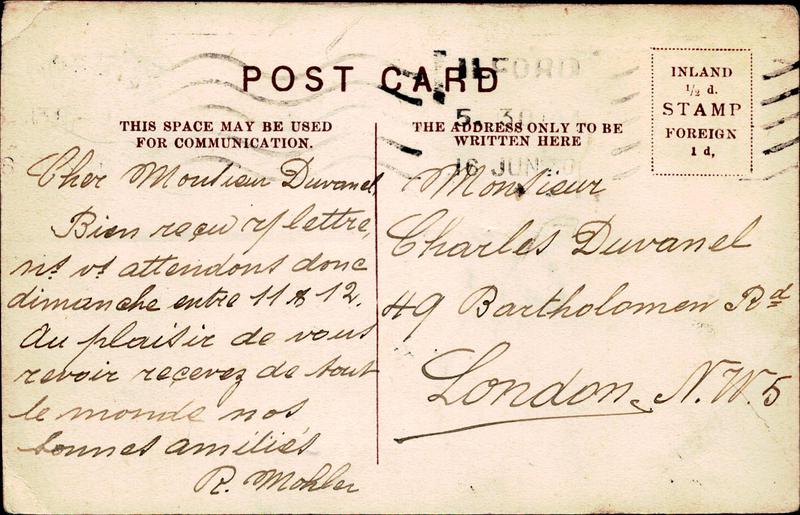 POST CARD
ILFORD
5. 30
16 JUN 20
INLAND
½ d.
STAMP
FOREIGN
1 d,
THIS SPACE MAY BE USED
FOR COMMUNICATION.
Cher Monsieur Duvanel,
Bien reçu v/ lettre,
ns vs attendons donc
dimanche entre 11 & 12.
Au plaisir de vous
revoir recevez de tout
le monde nos
bonnes amitiés
R. Mohler
THE ADDRESS ONLY TO BE
WRITTEN HERE
Monsieur
Charles Duvanel
49 Bartholomew Rd
London, N.W.5